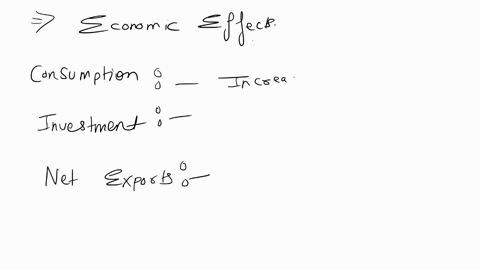 ⇒ Economic Effects.
Consumption :- Increa
Investment :-
Net Exports :-